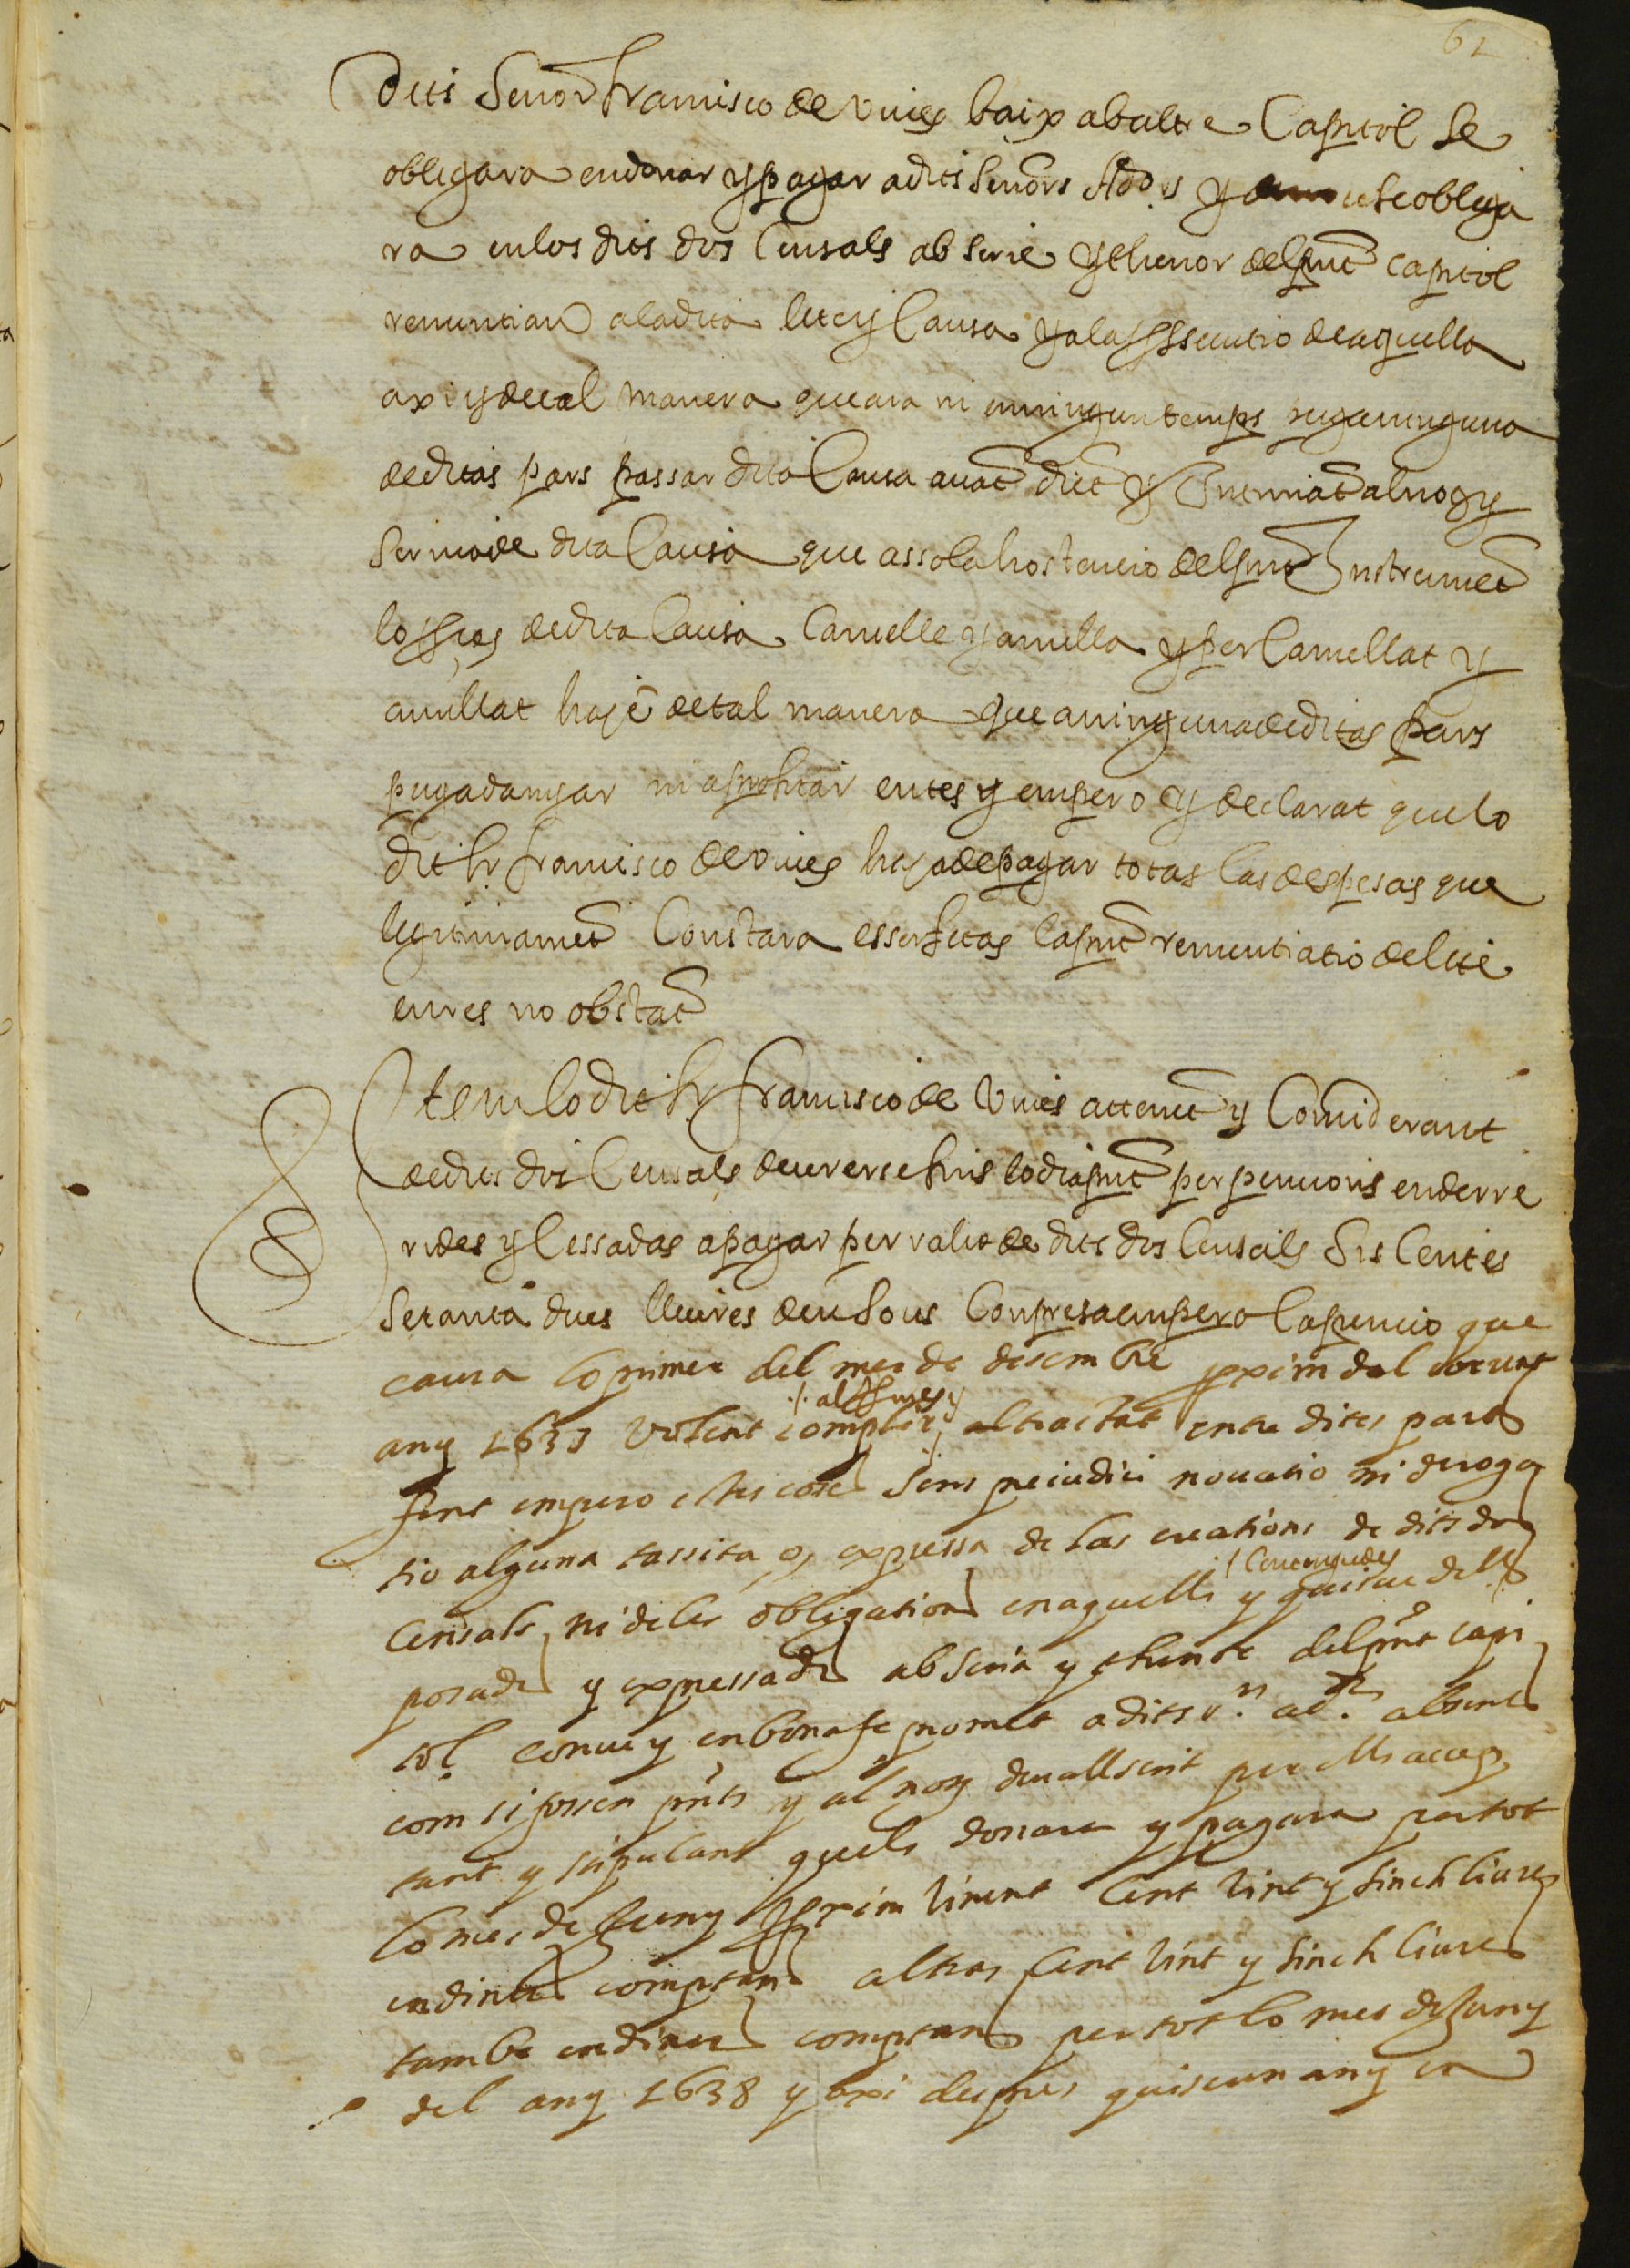 62
dits Senor Francisco de Vives baix ab altre Capitol se
obligara en donar y pagar a dits Senors Ad.rs y se obliga
ra en los dits dos Censals ab serie y thenor del pnt capitol
renuntian a la dita lite y Causa y a la essecutio de aquella
axi y de tal manera que ara ni en ningun temps puga ninguna
de ditas pars passar dita Causa auat dit y Intimat al nog y
scriua de dita Causa que assola hostencio del pnt Instrumet
lo proces de dita Causa Cancelle y anulla y per Cancellat y
anullat haje de tal manera que a ninguna de ditas pars
puga danyar ni aprofitar entes y empero y declarat que lo
dit Sr Francisco de Vives haja de pagar totas las despesas que
legitimamet Constara esser fetas la pnt renuntiatio de lite
en res no obstat
Item lo dit Sr Francisco de Vives attenet y Considerant
de dits dos Censals deurerse fins lo dia pnt per pencions enderre
rides y Cessadas a pagar per raho de dits dos Censals Sis Centes
Setanta dues lliures deu Sous Conpresa empero la pencio que
caura lo primer del mes de desembre pxim del corrent
any 1637 volent complir al tractat entre dites parts
/. alssures y
fent empero estes coses sens preiudici nouatio ni deroga
tio alguna tassita o, expressa de las creations de dits dos
Censals, ni de les obligations en aquells y quiscu dells
/ Contengudes
posades y expressades ab seria y thenor del pnt capi
tol conue y en bona fe promet a dits s.rs ad.rs absents
com si fossen pnts y al noy deuall scrit per ells accep
tant y stipulant quels donara y pagara per tot
lo mes de Juny pxim vinent Cent vint y sinch liures
en diners comptans altras Cent vint y sinch liures
tambe en diners comptans per tot lo mes de Juny
del any 1638 y axi despres quiscun any en